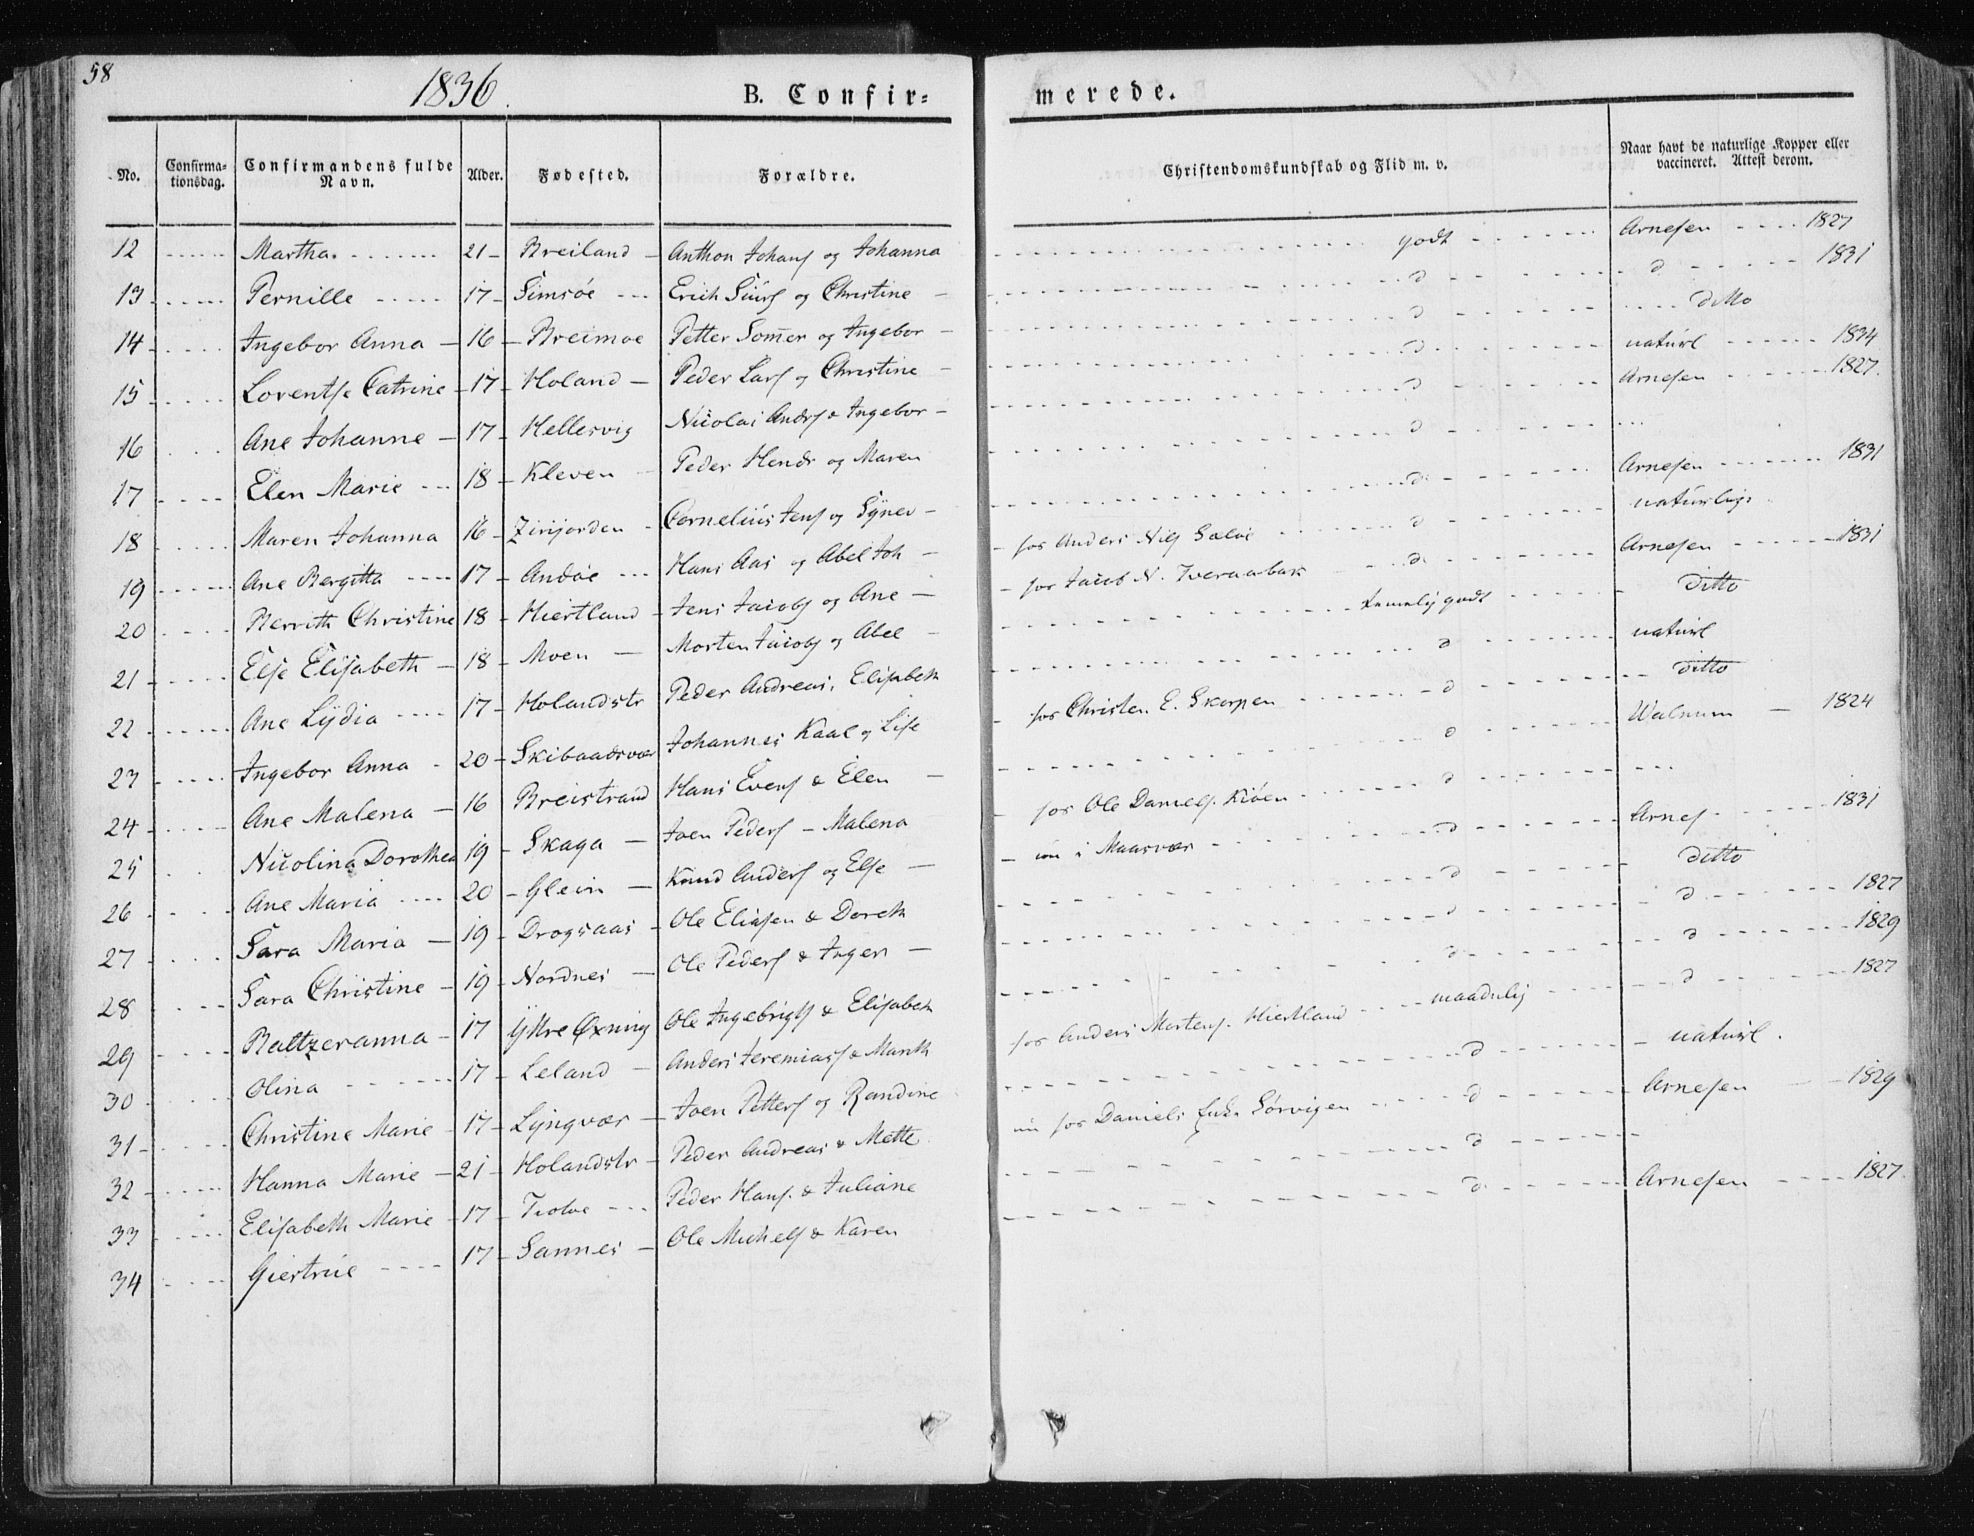 58
1836.
B. Confir=
merede.
No. Confirma-tionsdag. Confirmandens fulde Navn. Alder. Fødested. Forældre. Christendomskundskab og Flid m. v. Naar havt de naturlige Kopper eller vaccineret. Attest derom.
12 Martha. 21 Breiland Anthon Johans og Johanna godt Arnesen 1827
13 Pernille 17 Simsöe Erich og Christine d d 1831
14 Ingebor Anna 16 Breimoe Petter Somer og Ingebor d ditto
15 Lorentse Catrine 17 Holand Peder Lars og Christine d naturl 1834
16 Ane Johanne 17 Hellesvig Nicolai Anders & Ingebor d Arnesen 1827.
17 Elen Marie 18 Kleven Peder Hendr og Maren d
18 Maren Johanna 16 Cornelius Jens og Synev d Arnesen 1831
19 Ane Bergitta 17 Andöe Hans Aas og Abel Joh for Anders Nils d naturlige
20 Berrith Christine 18 Hiertland Jens Jacobs og Ane for Jacob N. d Arnesen 1831
21 Else Elisabeth 18 Moen Morten Jacobs og Abel temelig godt ditto
22 Ane Lydia 17 Holandstr Peder Andreas, Elisabeth d naturl
23 Ingebor Anna 20 Skibaadsvær Johannes Kaal og Lise for Christen E. Skorpen d ditto
24 Ane Malena 16 Breistrand Hans Evens & Elen d Walnum 1824
25 Nicolina Dorothea 19 Skaga Joen Peders Malena for Ole Daniels. d
26 Ane Maria 20 Glein Knud Anders og Else i Maasvær d Arnes 1831
27 Sara Maria 19 Drogsaas Ole Eliasen & Doreth d ditto
28 Sara Christine 19 Nordnes Ole Peders & Inger d d 1827
29 Baltzeranna 17 Yttre Øxning Ole Ingebrigts & Elisabeth d d 1829
30 Olina 17 Leland Anders Jeremias & Marth for Anders Mortens. Hiertland maadelig d 1827
31 Christine Marie 17 Lyngvær Joen Petters og Randine d naturl.
32 Hanna Marie 21 Holandstr Peder Andreas & Mette for Daniels Enke Sörvigen d Arnesen 1829
33 Elisabeth Marie 17 Peder Hans. & Juliane d
34 Giertrue 17 Sannes Ole Michels & Karen d Arnesen 1827.